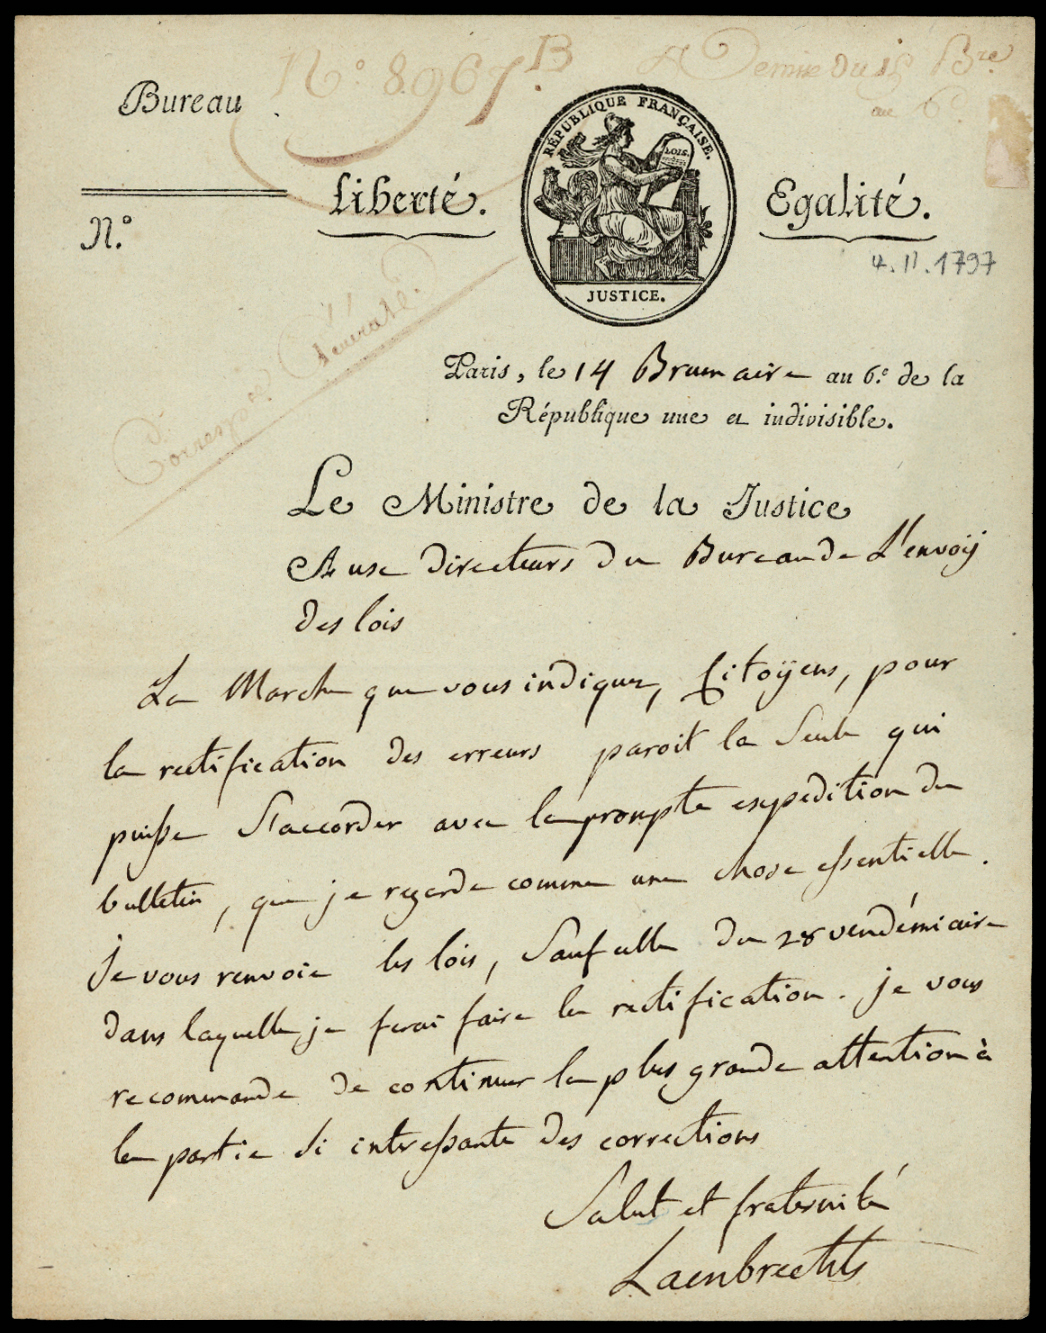 N.° 8.967.B
du 15 B.re
Bureau
RÉPUBLIQUE FRANÇAISE.
LOIS.
Liberté.
Egalité.
N.°
4. 11. 1797
JUSTICE.
Paris, le 14 Brumaire an 6.e de la
République une et indivisible.
Le Ministre de la Justice
Aux directeurs du Bureau de L'envoÿ
des lois
La Marche que vous indiquez, Citoÿens, pour
la rectification des erreurs paroit la Seule qui
puisse S'accorder avec la prompte expédition du
bulletin, que je regarde comme une chose essentielle.
Je vous renvoie les lois, Sauf celle du 28 vendémiaire
dans laquelle je ferai faire la rectification. je vous
recommande de continuer la plus grande attention à
la partie si intressante des corrections
Salut et fraternité
Lambrechts